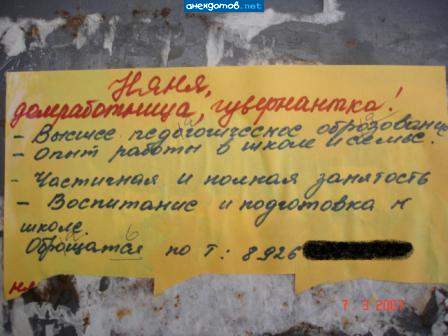 анекдотов.net
Няня,
домработница, гувернантка!
- Высшее педогогическое оброзование
- Опыт работы в школе и семье.
- Частичная и полная занятость
- Воспитание и подготовка к
школе.
Оброщатся по т: 8926
7 3 2007